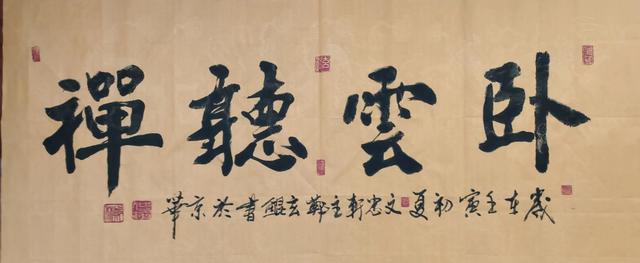 卧雲聽禪
歲在壬寅初夏文忠軒主鄭玄鯤書於京華